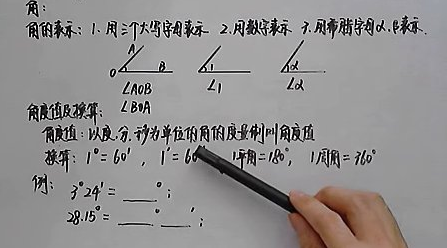 角：
角的表示：1. 用三个大写字母表示 2. 用数字表示 3. 用希腊字母α、β表示.
A
O B 1 α
∠AOB ∠1 ∠α
∠BOA
角度值及换算：
角度值：以度、分、秒为单位的角的度量制叫角度值
换算：1°=60′ ，1′=60 1平角=180°， 1周角=360°
例：
3°24′= ___° ；
28.15°= ___° ___′ ；